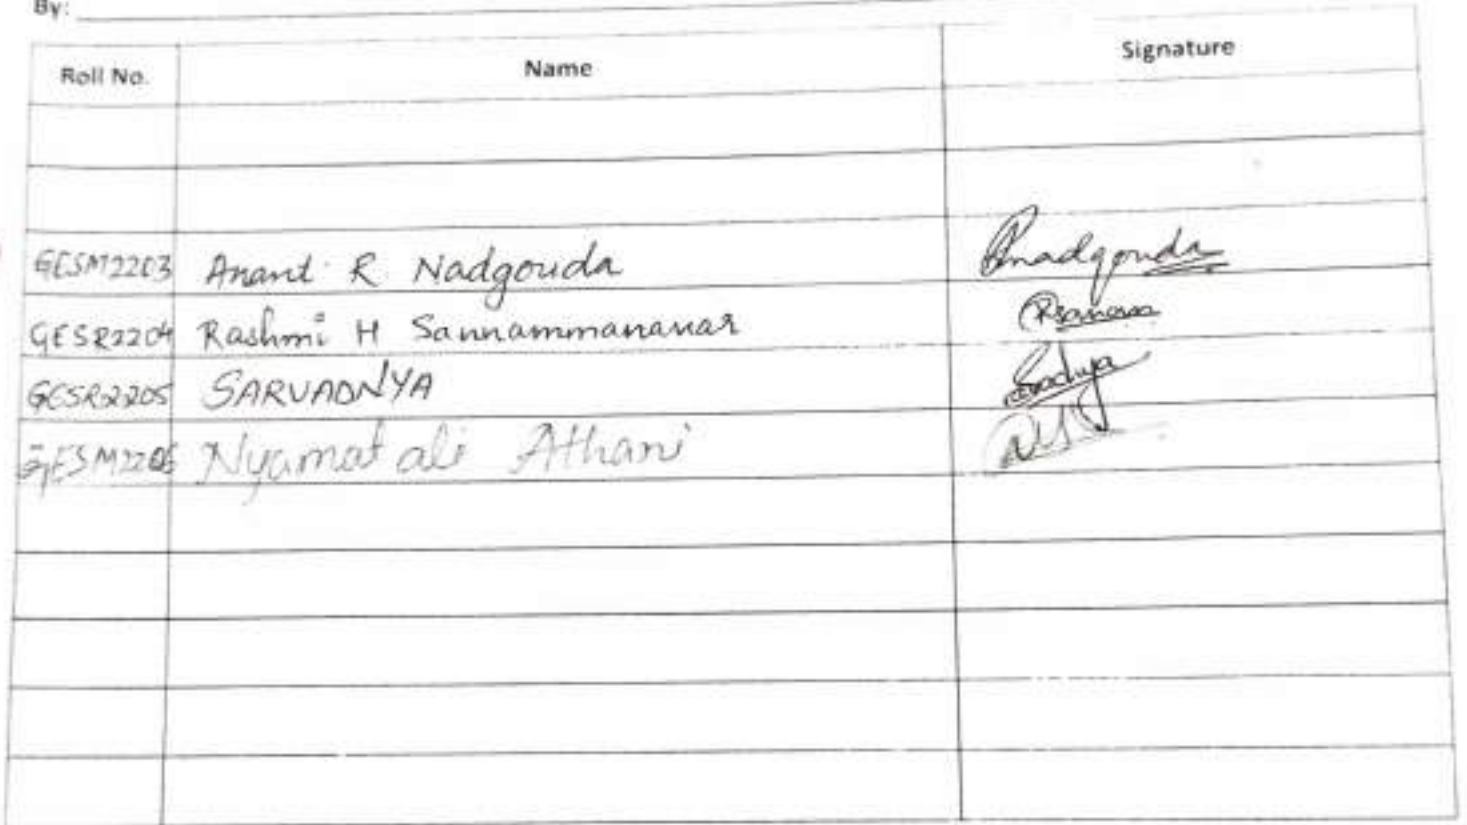 By:
Roll No. Name Signature
GESM2203 Anand R Nadgouda Rnadgouda
GESR2204 Rashmi H Sannammanavar
GESR2205 SARVADNYA
GESM2206 Nyamatali Athani